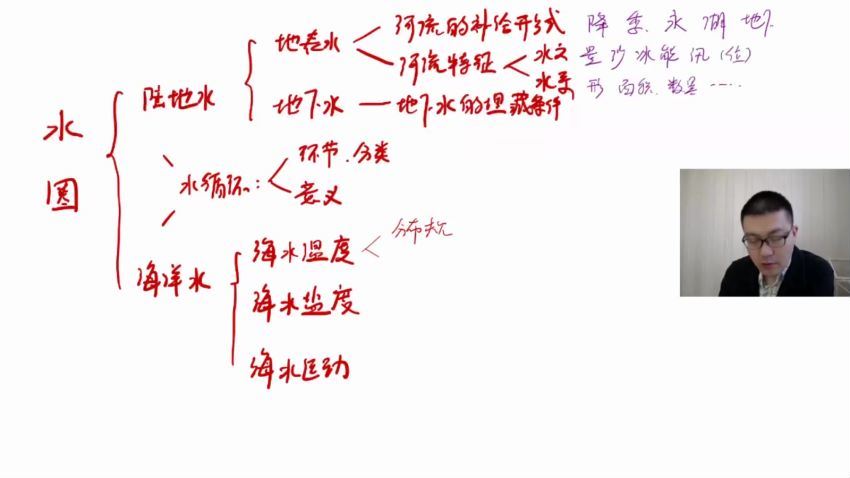 河流的补给形式 降 季 永 湖 地下
地表水
河流特征 水文 量 沙 冰 能 汛 (位)
水系 形 面积、数量……
陆地水
地下水 — 地下水的埋藏条件
水圈
环节、分类
水循环:
意义
分布
海水温度
海洋水
海水盐度
海水运动